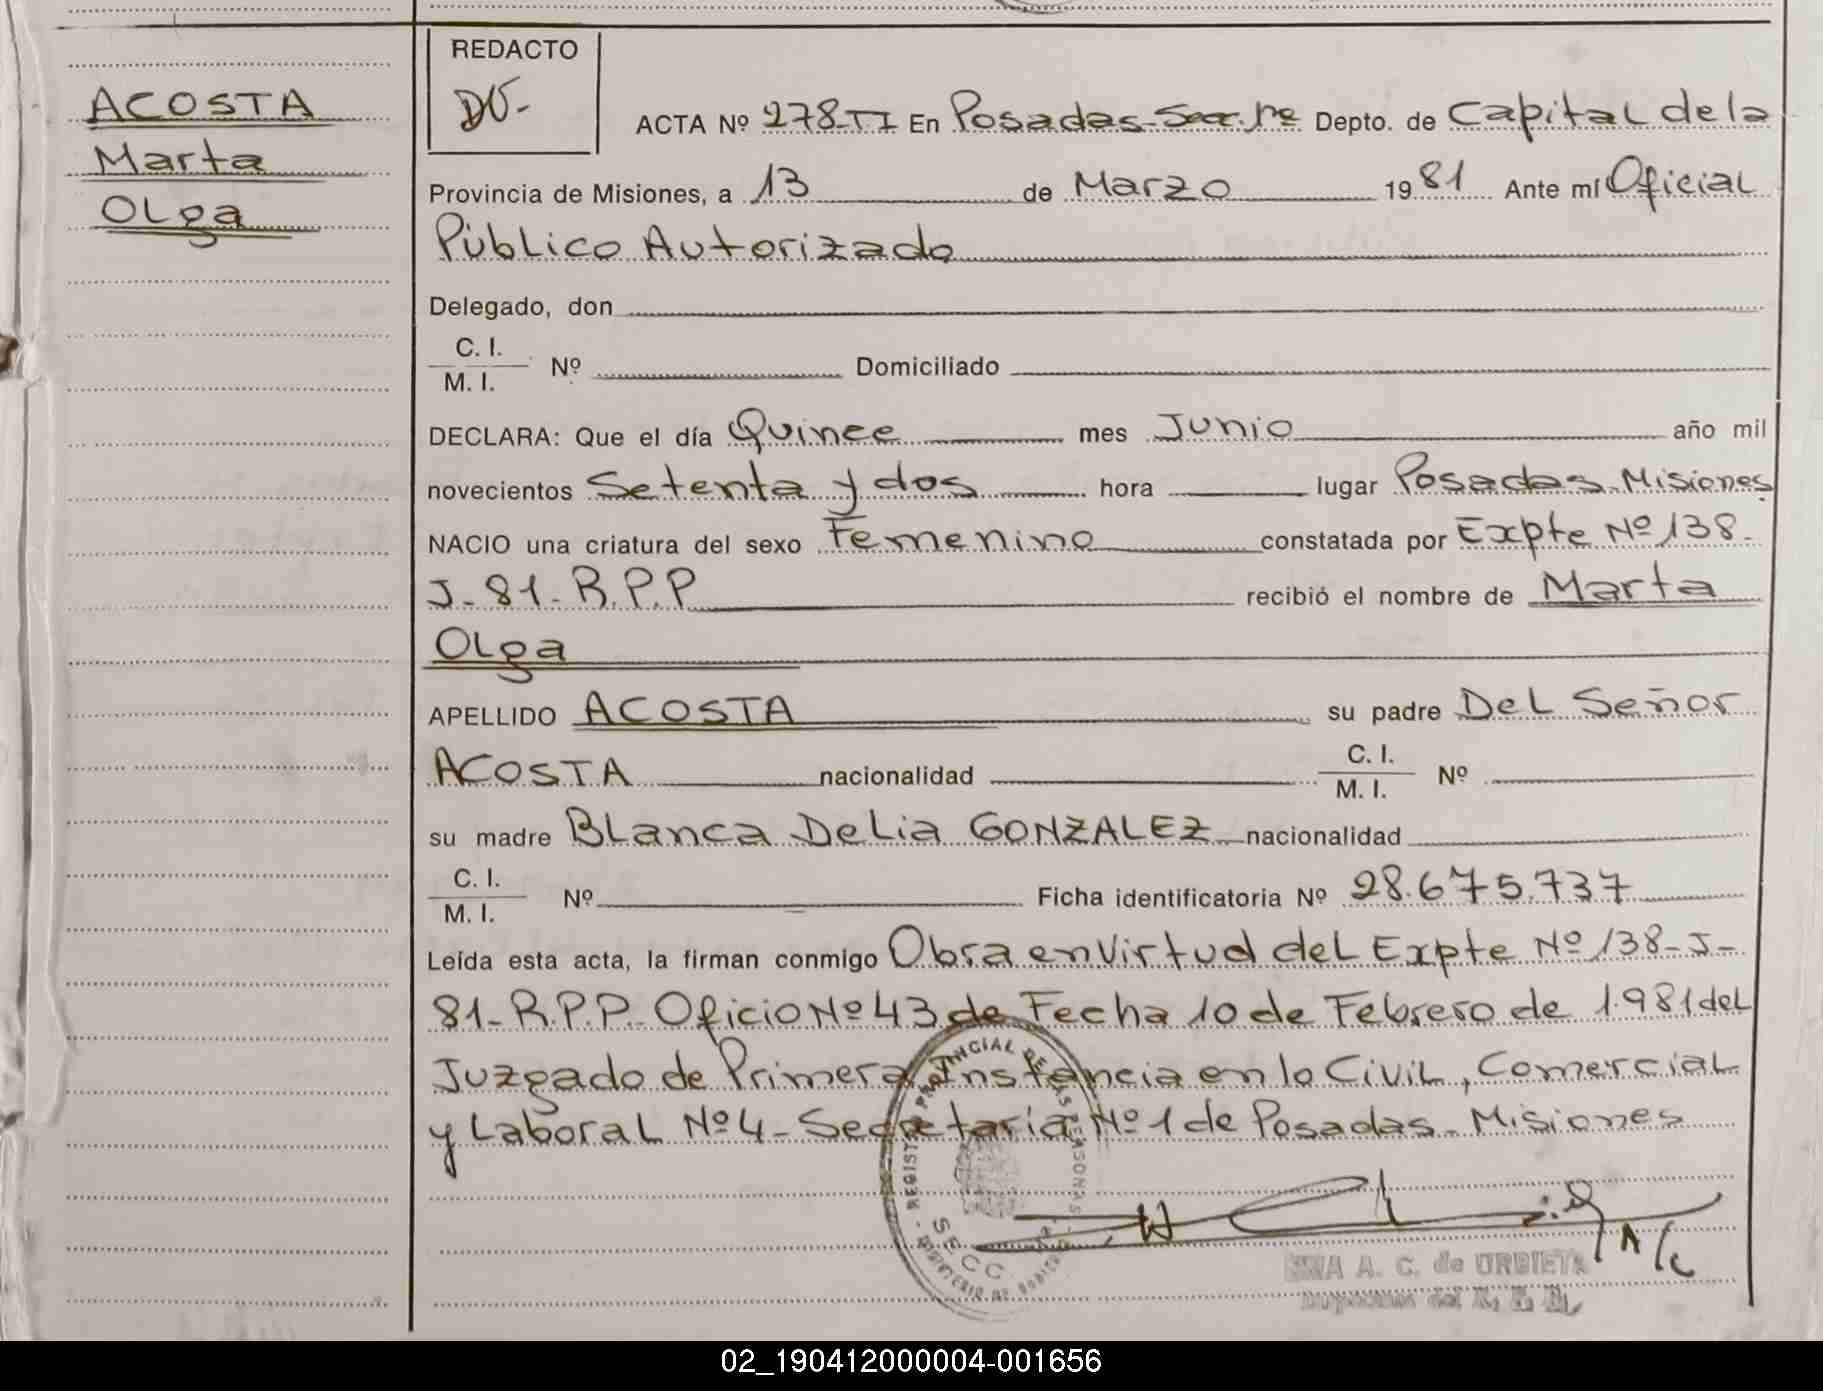 ACOSTA
Marta
OLga
REDACTO
DV-
ACTA Nº 278-TI En Posadas-Secc.1ra Depto. de Capital de la
Provincia de Misiones, a 13 de Marzo 1981 Ante mí Oficial
Público Autorizado
Delegado, don
C. I.
M. I. Nº Domiciliado
DECLARA: Que el día Quince mes Junio año mil
novecientos Setenta y dos hora lugar Posadas-Misiones
NACIO una criatura del sexo Femenino constatada por Expte Nº 138-
J-81-R.P.P recibió el nombre de Marta
OLga
APELLIDO ACOSTA su padre DeL Señor
ACOSTA nacionalidad C. I. M. I. Nº
su madre BLanca DeLia GONZALEZ nacionalidad
C. I.
M. I. Nº Ficha identificatoria Nº 28.675.737
Leída esta acta, la firman conmigo Obra en Virtud deL Expte Nº 138-J-
81-R.P.P. Oficio Nº 43 de Fecha 10 de Febrero de 1.981 deL
Juzgado de Primera Instancia en lo CiviL, ComerciaL
y LaboraL Nº 4- Secretaría Nº 1 de Posadas-Misiones
REGISTRO PROVINCIAL DE LAS PERSONAS
SECC
A. C. de URBIETA
02_190412000004-001656